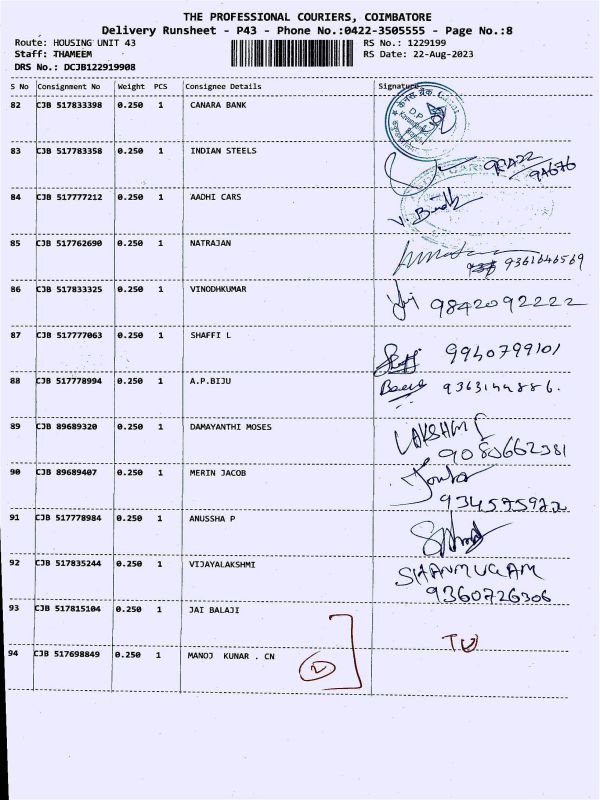 THE PROFESSIONAL COURIERS, COIMBATORE
Delivery Runsheet - P43 - Phone No.:0422-3505555 - Page No.:8
Route: HOUSING UNIT 43 RS No.: 1229199
Staff: THAMEEM RS Date: 22-Aug-2023
DRS No.: DCJB122919908
S No Consignment No Weight PCS Consignee Details Signature
82 CJB 517833398 0.250 1 CANARA BANK
83 CJB 517783358 0.250 1 INDIAN STEELS
94676
84 CJB 517777212 0.250 1 AADHI CARS
85 CJB 517762690 0.250 1 NATRAJAN
9361646569
86 CJB 517833325 0.250 1 VINODHKUMAR
9842092222
87 CJB 517777063 0.250 1 SHAFFI L
9940799101
88 CJB 517778994 0.250 1 A.P.BIJU
9363144886.
89 CJB 89689320 0.250 1 DAMAYANTHI MOSES
LAKSHMI
9080662381
90 CJB 89689407 0.250 1 MERIN JACOB
91 CJB 517778984 0.250 1 ANUSSHA P
92 CJB 517835244 0.250 1 VIJAYALAKSHMI
SHANMUGAM
9360726306
93 CJB 517815104 0.250 1 JAI BALAJI
94 CJB 517698849 0.250 1 MANOJ KUNAR . CN